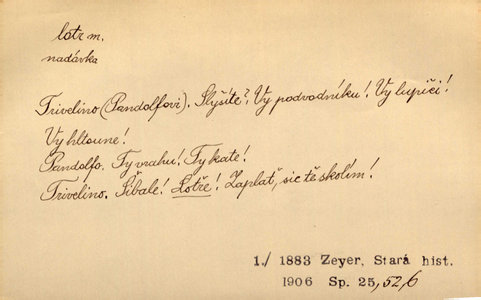 lotr m.
nadávka
Trivelino (Pandolfovi). Slyšíte? Vy podvodníku! Vy lupiči!
Vy hltoune!
Pandolfo. Ty vrahu! Ty kate!
Trivelino. Šibale! Lotře! Zaplať, sic tě skolím!
1./ 1883 Zeyer, Stará hist.
1906 Sp. 25, 52, 6